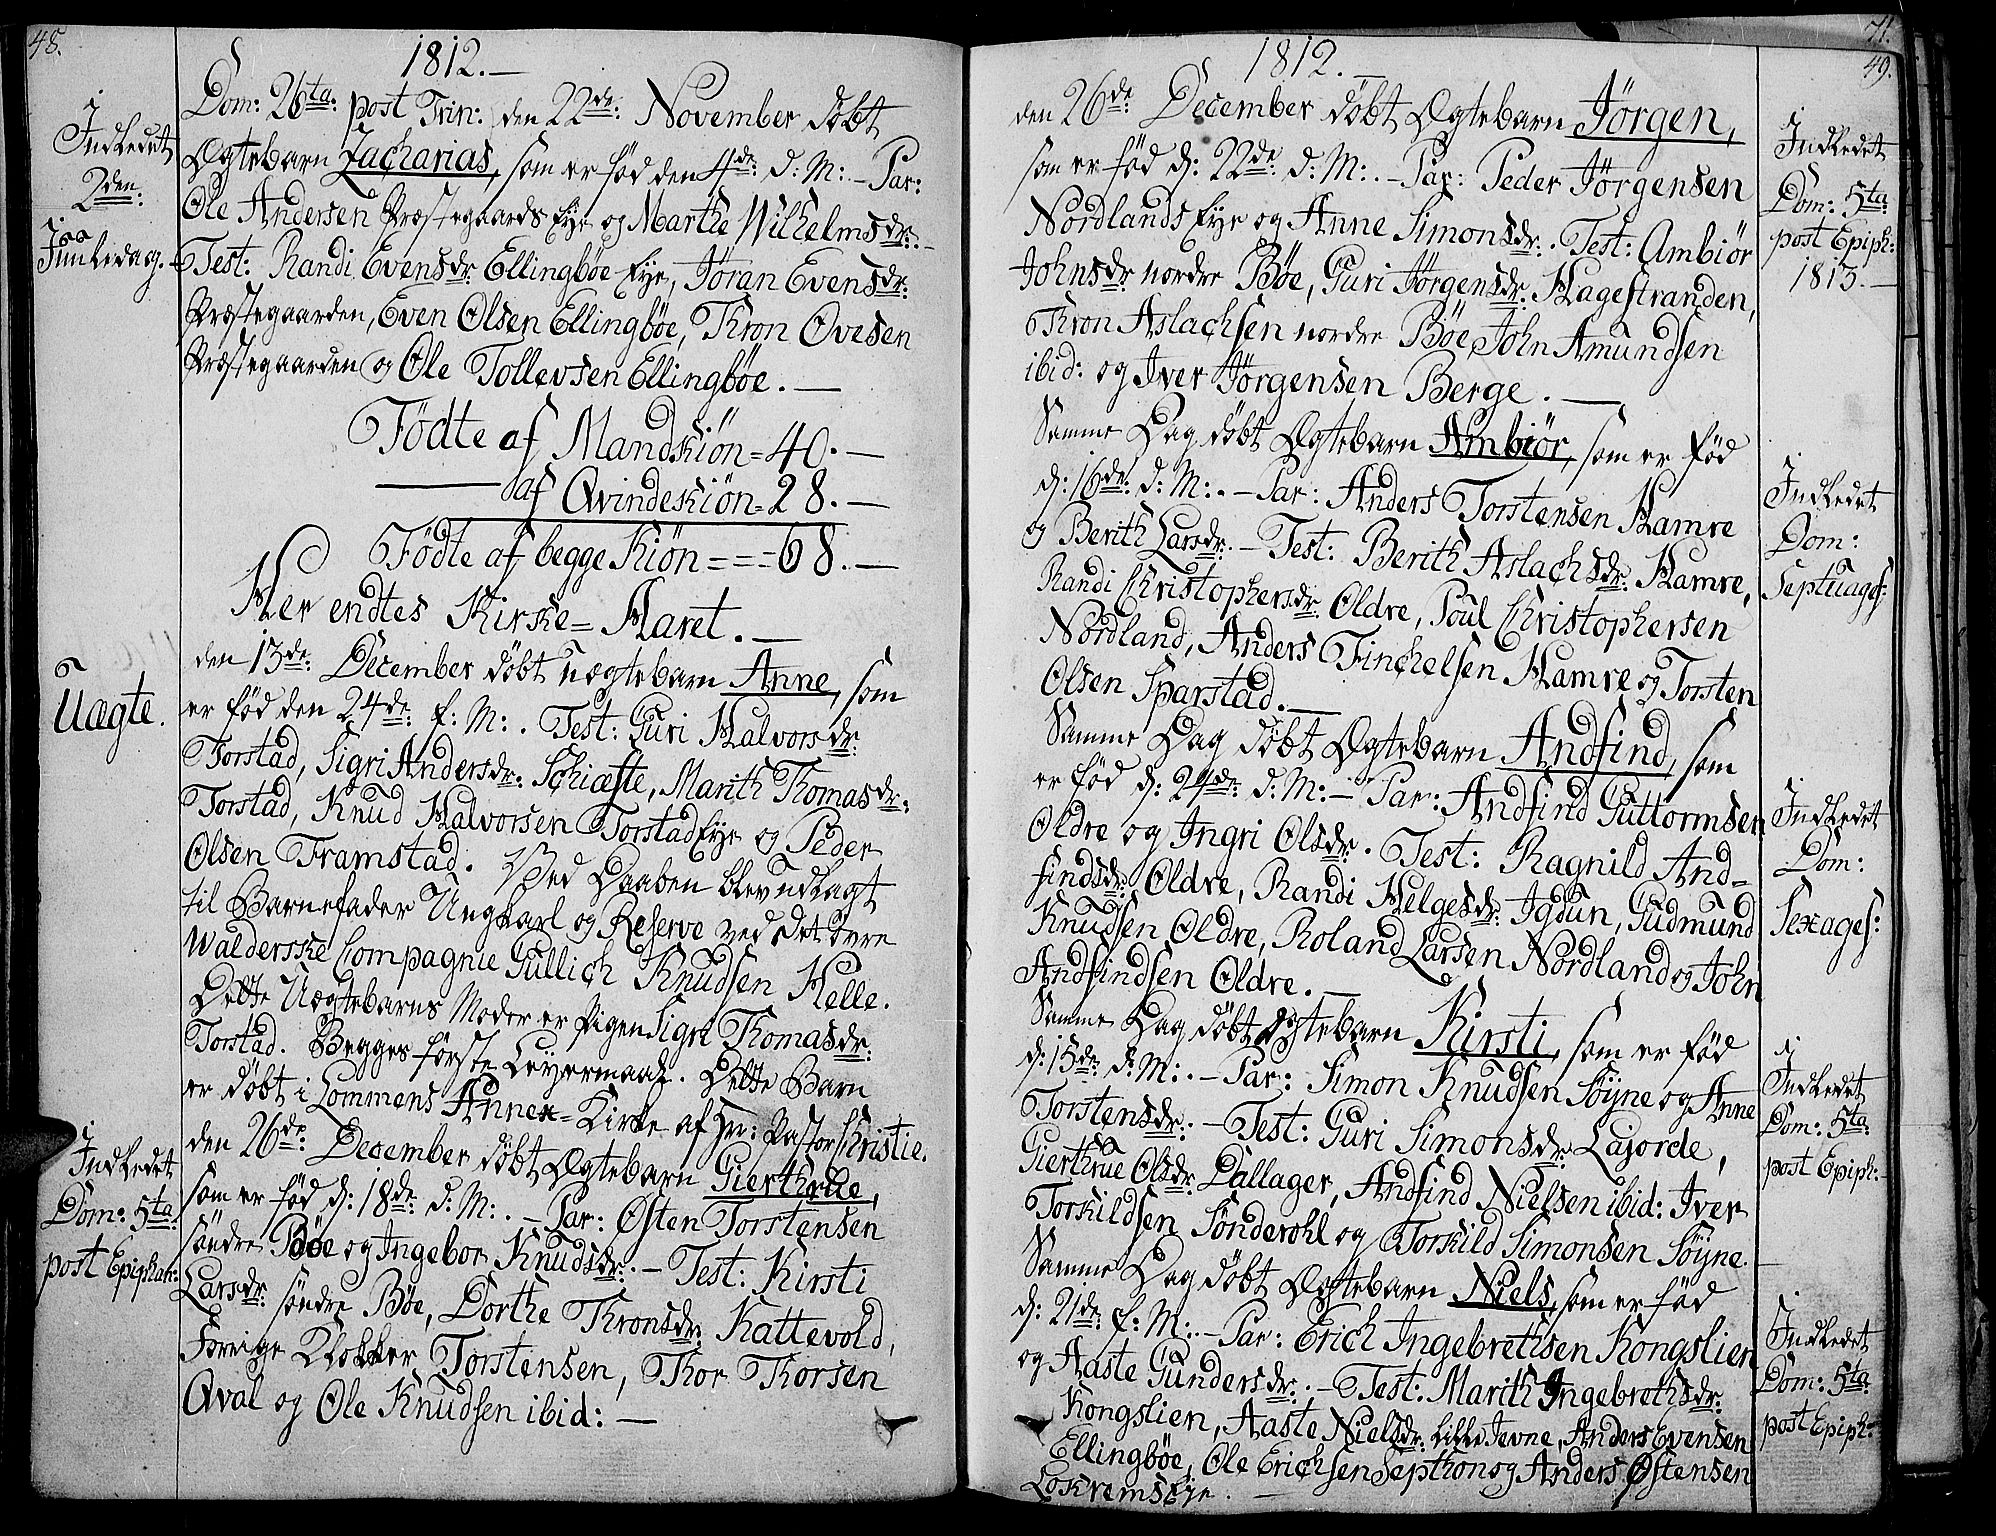 48.
1812.
Dom: 26ta: post Trin: den 22de: November döbt
Ægtebarn Zacharias, som er föd den 4de: d: M: - Par:
Ole Andersen Præstegaards Eye og Marthe Wilhelmsdr: -
Test: Randi Evensdr: Ellingböe Eye, Jöran Evensdr:
Præstegaarden, Even Olsen Ellingböe, Thron Ovesen
Præstegaarden og Ole Tollevsen Ellingböe. -
Födte af Mandkiön = 40. -
af Qvindeskiön = 28. -
Födte af begge Kiön = = = 68. -
Her endtes Kirke = Aaret. -
den 13de: December döbt uægtebarn Anne, som
er föd den 24de: f: M: . Test: Guri Halvorsdr:
Torstad, Sigri Andersdr: Schiæfte, Marith Thomasdr:
Torstad, Knud Halvorsen Torstad Eye og Peder
Olsen Framstad. Ved Daaben blev udlagt
til Barnefader Ungkarl og Reserve ved det övre
Walderske Compagnie Gullich Knudsen Helle.
Dette Uægtebarns Moder er Pigen Sigri Thomasdr:
Torstad. Begges förste Leyermaal. Dette Barn
er döbt i Lommens Annex = Kirke af Hr: Pastor Christie.
den 26de: December döbt Ægtebarn Gierthrue,
som er föd d: 18de: d: M: . - Par: Östen Torstensen
söndre Böe og Ingebor Knudsdr: . - Test: Kirsti
Larsdr: söndre Böe, Dorthe Thronsdr: Kattevold,
Forrige Klokker Torstensen, Thor Thorsen
Qval og Ole Knudsen ibid: -
Indledet
2den:
Juuledag.
Uægte.
Indledet
Dom: 5ta:
post Epiphan:
71.
49.
1812. -
den 26de: December döbt Ægtebarn Jörgen,
som er föd d: 22de: d: M: . - Par: Peder Jörgensen
Nordlands Eye og Anne Simonsdr: . Test: Ambiör
Johnsdr: nordre Böe, Guri Jörgensdr: Hagestranden,
Thron Aslachsen nordre Böe, John Amundsen
ibid: og Iver Jörgensen Berge. -
Samme Dag döbt Ægtebarn Ambiör, som er föd
d: 16de: d: M: . - Par: Anders Torstensen Hamre
og Berith Larsdr: . - Test: Berith Aslachsdr: Hamre,
Randi Christophersdr: Oldre, Poul Christophersen
Nordland, Anders Finchelsen Hamre og Torsten
Olsen Sparstad. -
Samme Dag döbt Ægtebarn Andfind, som
er föd d: 24de: d: M: - Par: Andfind Guttormsen
Oldre og Ingri Olsdr: . Test: Ragnild And=
findsdr: Oldre, Randi Helgesdr: Igdun, Gudmund
Knudsen Oldre, Roland Larsen Nordland og John
Andfindsen Oldre. -
Samme Dag döbt Ægtebarn Kirsti, som er föd
d: 15de: d: M: . - Par: Simon Knudsen Söyne og Anne
Torstensdr: . - Test: Guri Simonsdr: Lajorde,
Gierthrue Olsdr: Dallager, Andfind Nielsen ibid: Iver
Torkildsen Sönderohl og Torkild Simonsen Söyne. -
Samme Dag döbt Ægtebarn Niels, som er föd
d: 21de: f: M: . - Par: Erich Ingebrethsen Kongslien
og Aaste Gundersdr: . - Test: Marith Ingebrethsdr:
Kongslien, Aaste Nielsdr: Lille Jevne, Anders Evensen
Ellingböe, Ole Erichsen Septhon og Anders Östensen
Lokrems Eye. -
Indledet
Dom: 5ta:
post Epiph:
1813. -
Indledet
Dom:
Septuages:
Indledet
Dom:
Sexages:
Indledet
Dom: 5ta:
post Epiph:
Indledet
Dom: 5ta:
post Epiph: